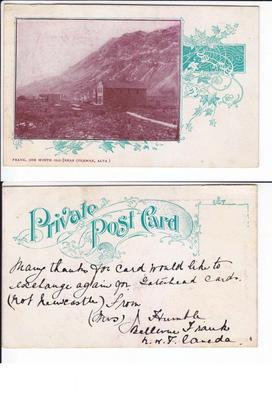 FRANK, ONE MONTH OLD (NEAR COLEMAN, ALTA)
Private Post Card
Many thanks for card would like to
exchange again for Gateshead Cards.
(not Newcastle) from
(Mrs) J Humble
Bellevue Frank
N.W.T. Canada.